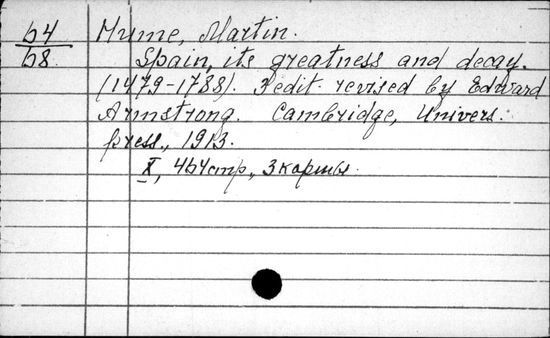 64 Hume, Martin.
68 Spain, its greatness and decay.
(1479-1788). 3 edit. revised by Edward
Armstrong. Cambridge, Univers.
press., 1913.
X, 464стр., 3 карты.